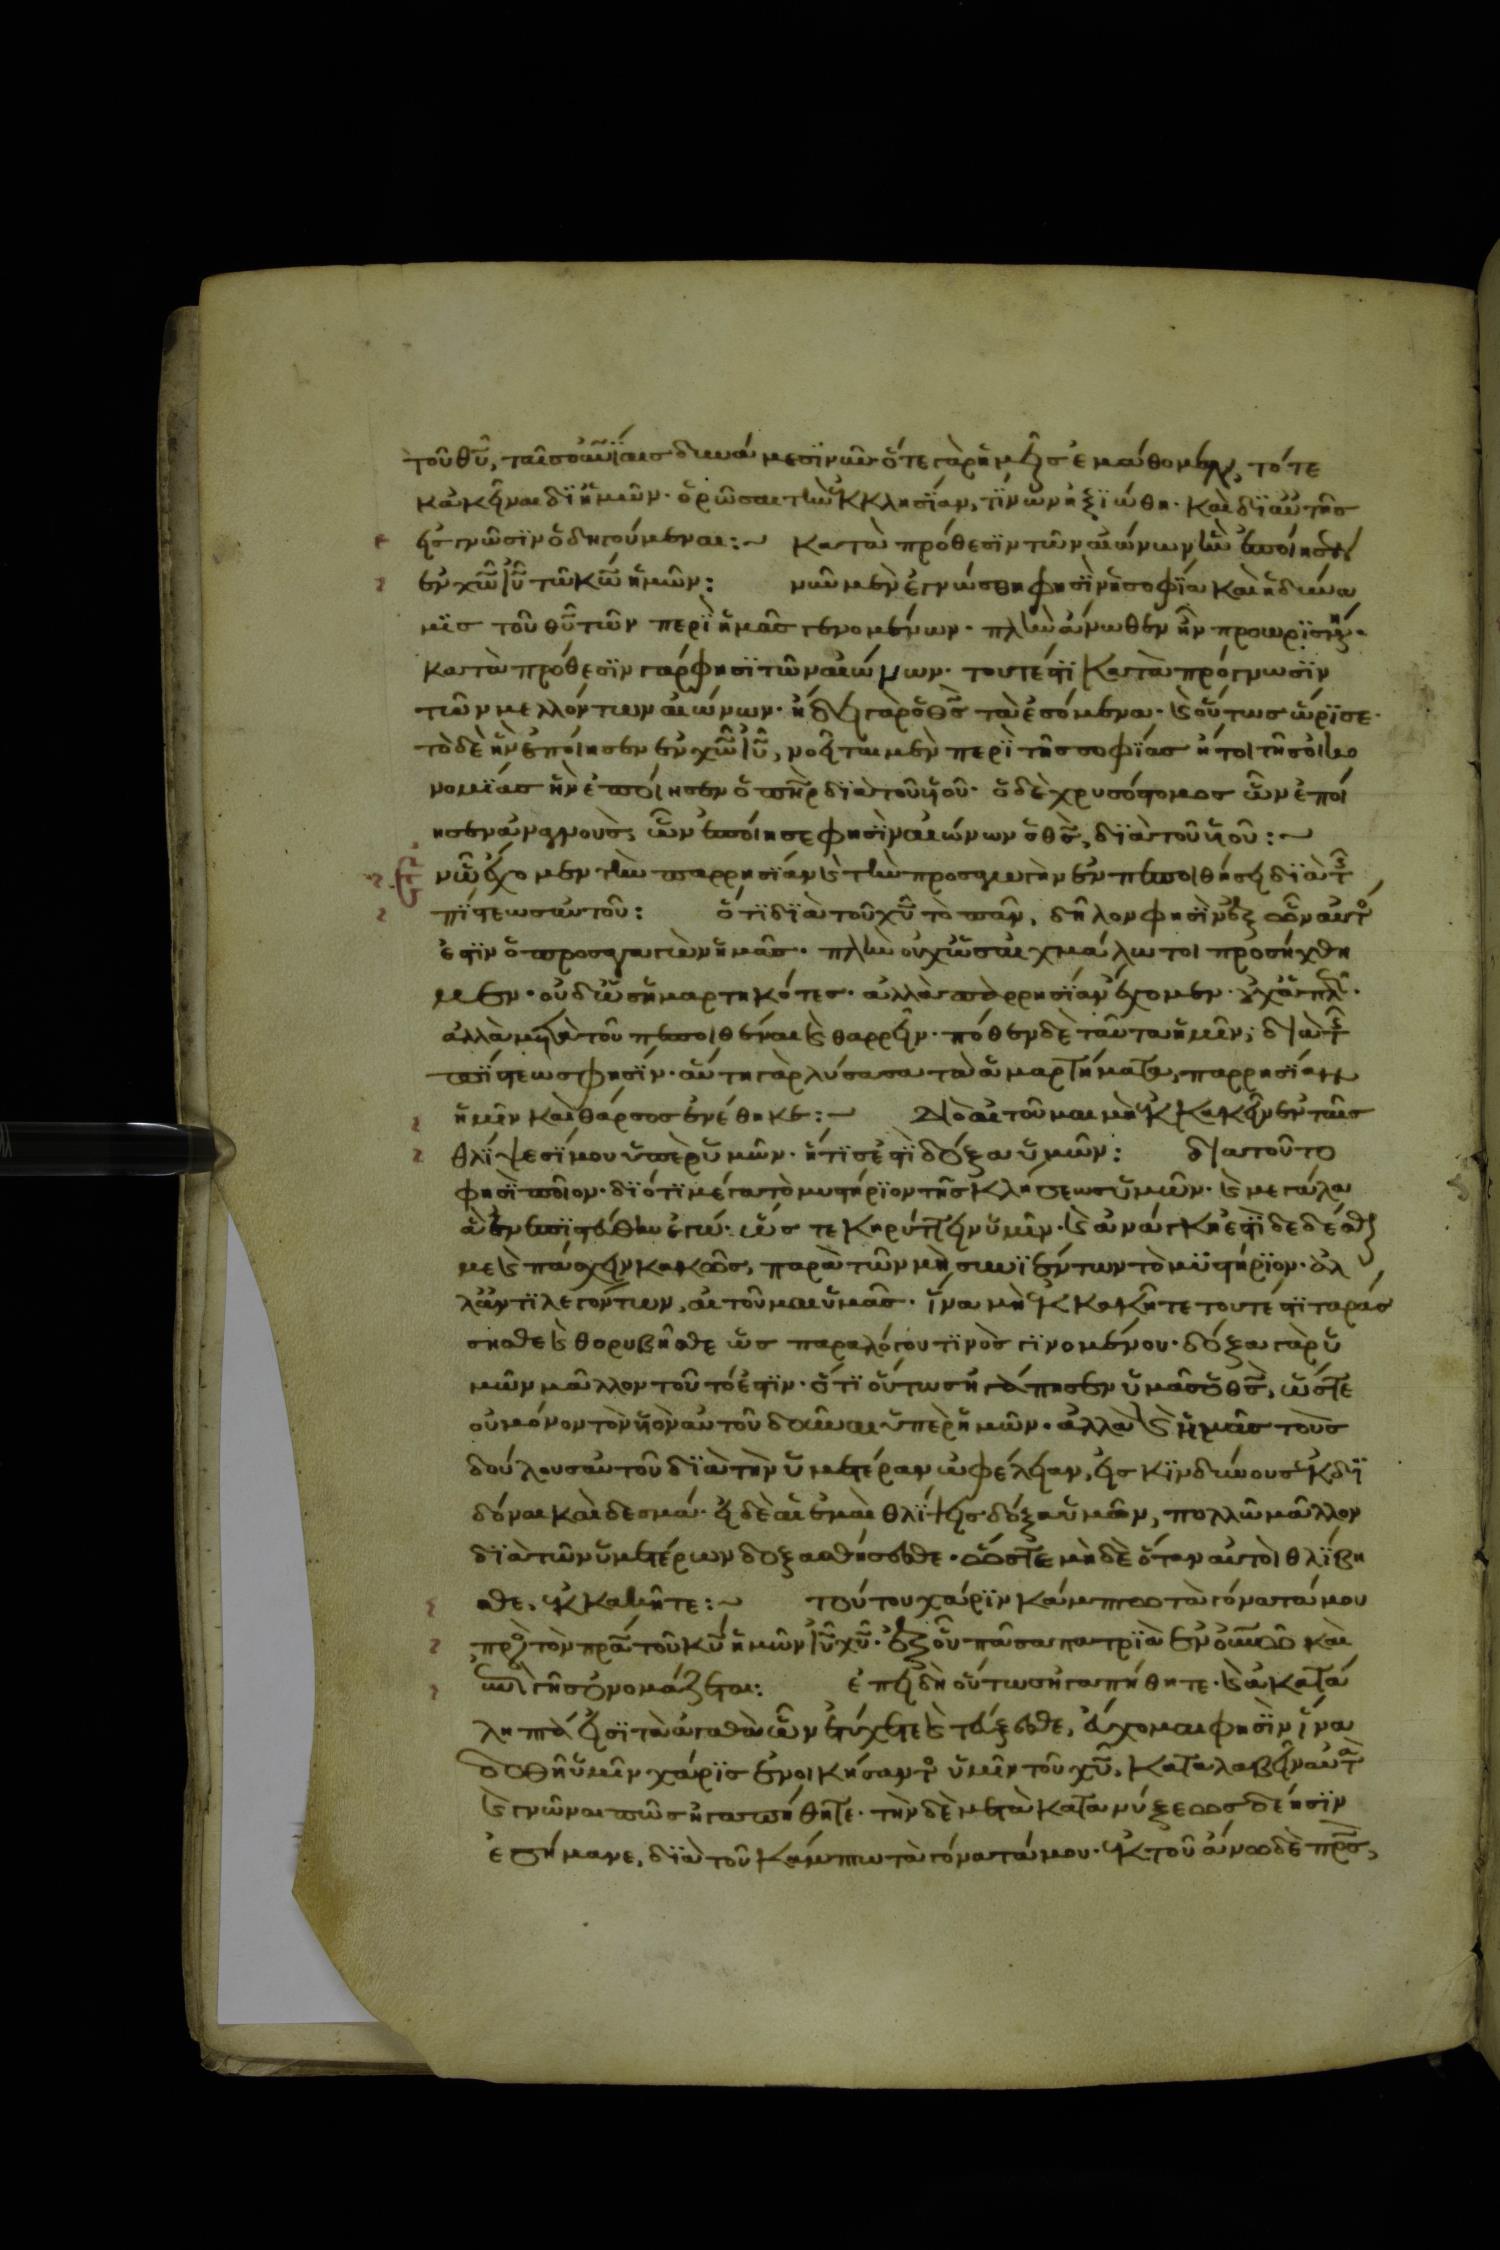 τοῦ θυ, ταῖς οὐνίαις δυνάμεσι νῦν· ὅτε γὰρ ἡμεῖς ἐμάθομεν, τότε
κἀκεῖναι δι ἡμῶν· ὁρῶσαι τὴν ἐκκλησίαν, τίνων ἠξιώθη· καὶ δι αὐτῆς
εἰς γνῶσιν ὁδηγούμεναι:~ κατὰ πρόθεσιν τῶν αἰώνων ἣν ἐποίησεν
ἐν χω ιυ τῶ κω ἡμῶν: νῦν μὲν ἐγνώσθη φησὶν ἡ σοφία καὶ ἡ δύνα
μις τοῦ θυ τῶν περὶ ἡμᾶς γενομένων· πλὴν ἄνωθεν ἦν προωρισμένη·
κατὰ πρόθεσιν γάρ φησι τῶν αἰώνων· τουτέστι κατὰ πρόγνωσιν
τῶν μελλόντων αἰώνων· ἤδει γὰρ ὁ θς τὰ ἐσόμενα· καὶ οὕτως ὥρισε·
τὸ δὲ ἣν ἐποίησεν ἐν χω ιυ, νοεῖται μὲν περὶ τῆς σοφίας ἤτοι τῆς οἰκο
νομίας ἣν ἐποίησεν ὁ πηρ διὰ τοῦ υἱοῦ· ὁ δὲ χρυσόστομος ὧν ἐποί
ησεν ἀναγνοὺς, ὧν ἐποίησε φησὶν αἰώνων ὁ θς, διὰ τοῦ υἱοῦ:~
ἐν ῶ ἔχομεν τὴν παρρησίαν καὶ τὴν προσαγωγὴν ἐν πεποιθήσει διὰ τῆς
πίστεως αὐτοῦ: ὅτι διὰ τοῦ χυ τὸ πᾶν, δῆλον φησὶν ἐξ ὧν αὐτός
ἐστιν ὁ προσαγαγὼν ἡμᾶς· πλὴν οὐχ ὡς αἰχμάλωτοι προσήχθη
μεν· οὐδ ὡς ἡμαρτηκότες· ἀλλὰ παρρησίαν ἔχομεν· οὐχ ἁπλῶς·
ἀλλὰ μετὰ τοῦ πεποιθέναι καὶ θαρρεῖν· πόθεν δὲ ταῦτα ἡμῖν; διὰ τῆς
πίστεως φησίν· αὕτη γὰρ λύσασα τὰ ἁμαρτήματα, παρρησίαν
ἡμῖν καὶ θάρσος ἐνέθηκε:~ Διὸ αἰτοῦμαι μὴ ἐκκακεῖν ἐν ταῖς
θλίψεσί μου ὑπὲρ ὑμῶν· ἥτις ἐστὶ δόξα ὑμῶν: διὰ τοῦτο
φησὶ ποῖον· διότι μέγα τὸ μυστήριον τῆς κλήσεως ὑμῶν· καὶ μεγάλα
ἃ ἐνεπιστεύθην ἐγώ· ὥς τε κηρύττειν ὑμῖν· καὶ ἀνάγκη ἐστὶ δεδέσθαι
με καὶ πάσχειν κακῶς, παρὰ τῶν μὴ συνιέντων τὸ μυστήριον· ἀλ
λ ἀντιλεγόντων, αἰτοῦμαι ὑμᾶς· ἵνα μὴ ἐκκακῆτε τουτέστι ταράσ
σησθε καὶ θορυβῆσθε ὡς παραλόγου τινὸς γινομένου· δόξα γὰρ ὑ
μῶν μᾶλλον τοῦτό ἐστιν· ὅτι οὕτως ἠγάπησεν ὑμᾶς ὁ θς, ὥστε
οὐ μόνον τὸν υἱὸν αὐτοῦ δοῦναι ὑπὲρ ἡμῶν· ἀλλὰ καὶ ἡμᾶς τοὺς
δούλους αὐτοῦ διὰ τὴν ὑμετέραν ὠφέλειαν, εἰς κινδύνους ἐκδι
δόναι καὶ δεσμά· εἰ δὲ αἱ ἐμαὶ θλίψεις δόξα ὑμῶν, πολλῶ μᾶλλον
διὰ τῶν ὑμετέρων δοξασθήσεσθε· ὥστε μηδὲ ὅταν αὐτοὶ θλίβη
σθε, ἐκκακῆτε:~ τούτου χάριν κάμπτω τὰ γόνατά μου
πρὸς τὸν πρα τοῦ κυ ἡμῶν ιυ χυ· ἐξ οὗ πᾶσα πατριὰ ἐν οὐνω καὶ
ἐπὶ γῆς ὀνομάζεται: ἐπειδὴ οὕτως ἠγαπήθητε· καὶ ἀκατά
ληπτά εἰσι τὰ ἀγαθὰ ὧν ἐτύχετε καὶ τεύξεσθε, εὔχομαι φησὶν ἵνα
δοθῆ ὑμῖν χάρις ἐνοικήσαντος ὑμῖν τοῦ χυ, καταλαβεῖν αὐτὰ
καὶ γνῶναι πῶς ἠγαπήθητε· τὴν δὲ μετὰ κατανύξεως δέησιν
ἐσήμανε, διὰ τοῦ κάμπτω τὰ γόνατά μου· ἐκ τοῦ ἄνω δὲ πρς,